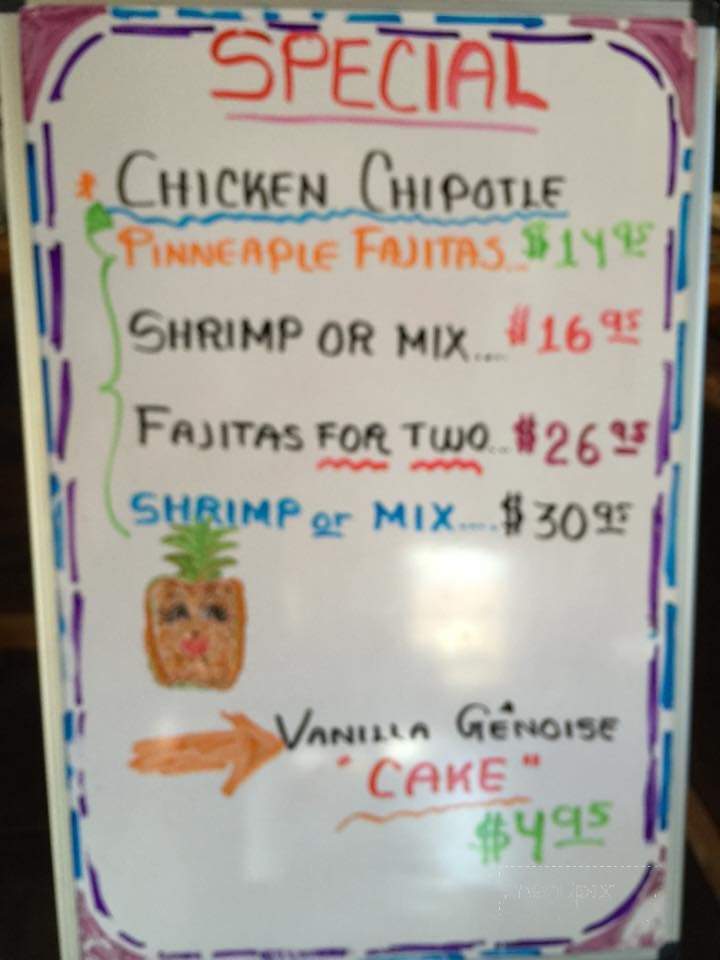 SPECIAL
* CHICKEN CHIPOTLE
PINNEAPLE FAJITAS... $14 95
SHRIMP OR MIX.... $16 95
FAJITAS FOR TWO... $26 95
SHRIMP or MIX.... $30 95
VANILLA GÊNOISE
"CAKE"
$4 95